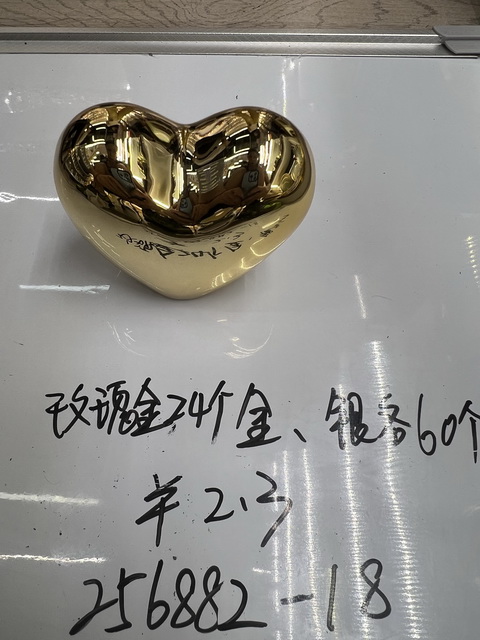 玫瑰金24个金、银各60个
半2.3
256882-18